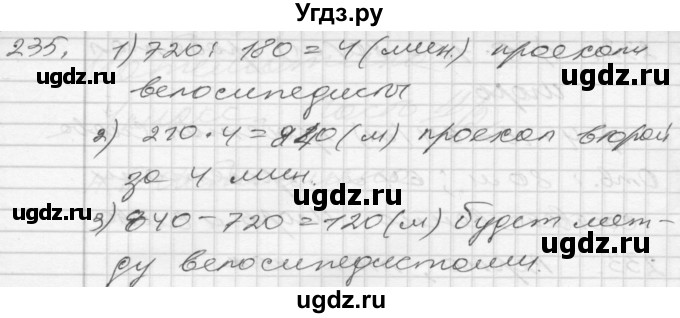 Угдз.ру
235. 1) 720 : 180 = 4 (мин.) проехали
ugdz.ru ugdz.ru
велосипедисты
ugdz.ru
2) 210 · 4 = 840 (м) проехал второй
за 4 мин.
ugdz.ru ugdz.ru
3) 840 - 720 = 120 (м) будет меж-
ugdz.ru
ду велосипедистами.
ugdz.ru ugdz.ru